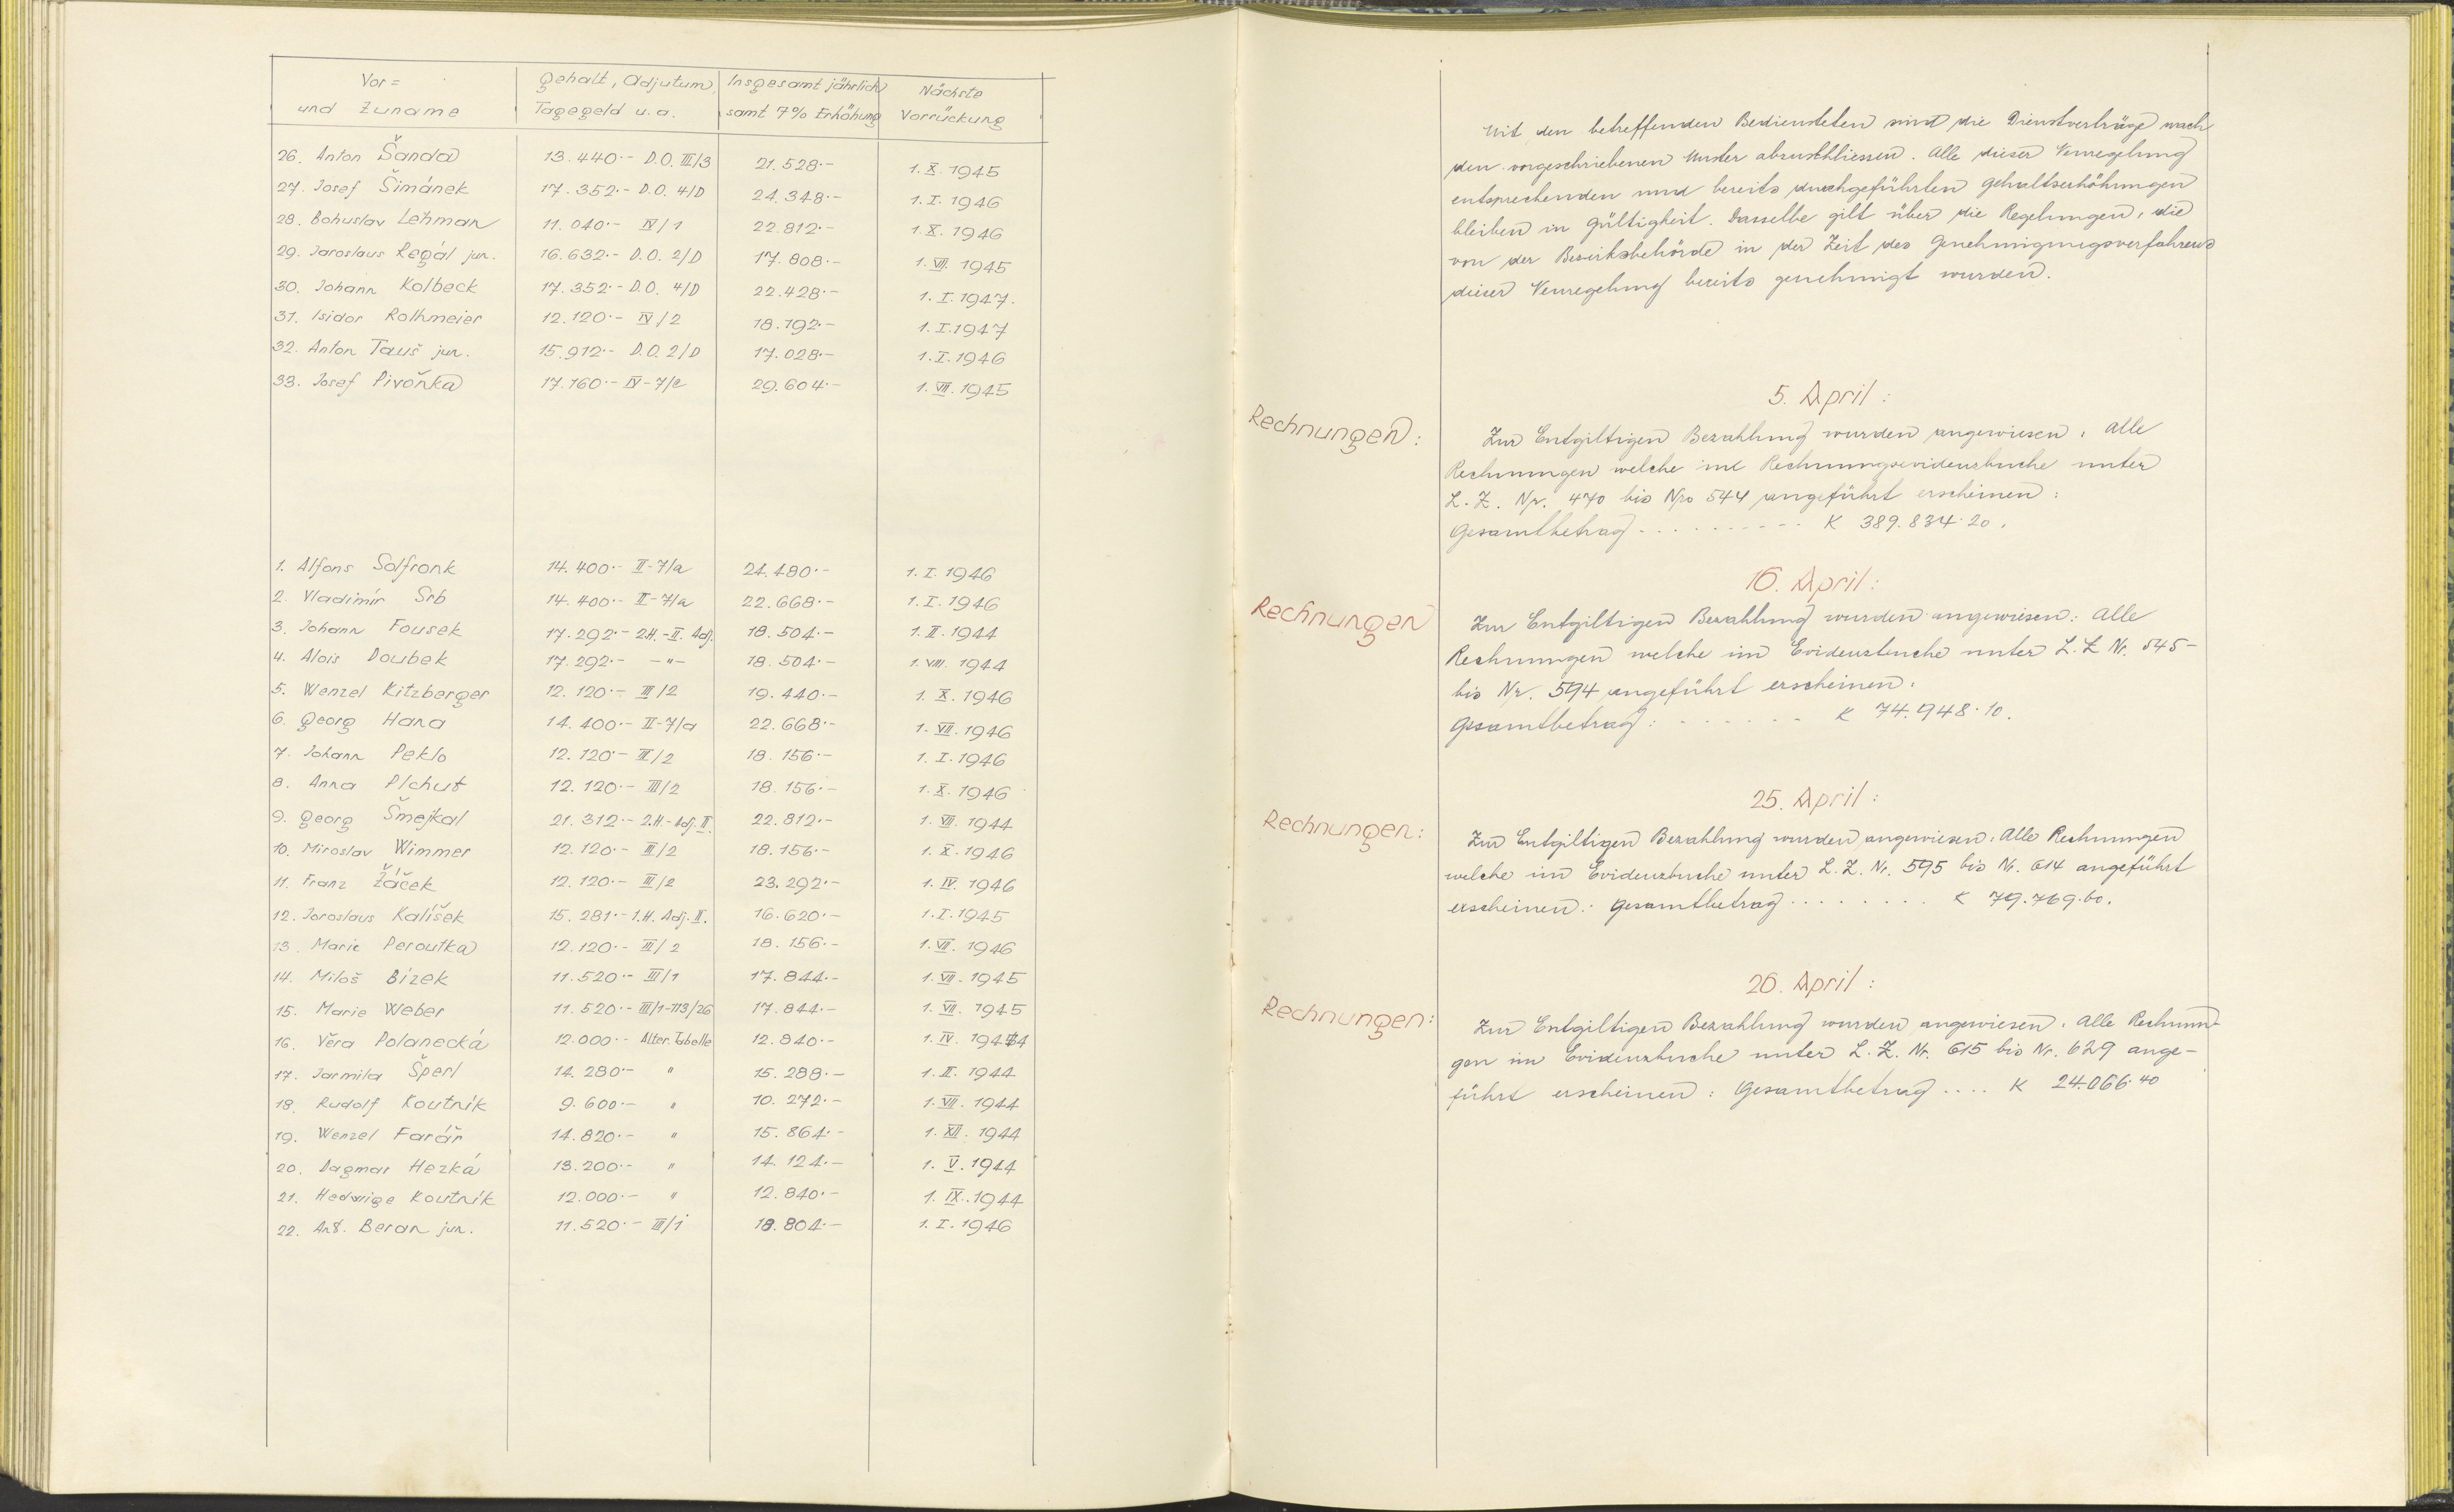 Vor= Gehalt, Adjutum, Insgesamt jährlich Nächste
und Zuname Tagegeld u. a. samt 7% Erhöhung Vorrückung
26. Anton Šanda 13.440·- D.O. III/3 21.528·- 1. X. 1945
27. Josef Šimánek 17.352·- D.O. 4/D 24.348·- 1. I. 1946
28. Bohuslav Lehman 11.040·- IV/1 22.812·- 1. X. 1946
29. Jaroslaus Regál jun. 16.632·- D.O. 2/D 17.808·- 1. VII. 1945
30. Johann Kolbeck 17.352·- D.O. 4/D 22.428·- 1. I. 1947.
31. Isidor Rothmeier 12.120·- IV/2 18.792·- 1. I. 1947
32. Anton Tauš jun. 15.912·- D.O. 2/D 17.028·- 1. I. 1946
33. Josef Pivoňka 17.160·- IV-7/e 29.604·- 1. VII. 1945
1. Alfons Solfronk 14.400·- II-7/a 24.480·- 1. I. 1946
2. Vladimír Srb 14.400·- II-7/a 22.668·- 1. I. 1946
3. Johann Fousek 17.292·- 2.H.-II. Adj. 18.504·- 1. II. 1944
4. Alois Doubek 17.292·- -"- 18.504·- 1. VIII. 1944
5. Wenzel Kitzberger 12.120·- III/2 19.440·- 1. X. 1946
6. Georg Hana 14.400·- II-7/a 22.668·- 1. VII. 1946
7. Johann Peklo 12.120·- III/2 18.156·- 1. I. 1946
8. Anna Plchut 12.120·- III/2 18.156·- 1. X. 1946
9. Georg Šmejkal 21.312·- 2.H.-Adj. II. 22.812·- 1. VII. 1944
10. Miroslav Wimmer 12.120·- III/2 18.156·- 1. X. 1946
11. Franz Žáček 12.120·- III/2 23.292·- 1. IV. 1946
12. Jaroslaus Kalíšek 15.281·- 1.H. Adj. II. 16.620·- 1. I. 1945
13. Marie Peroutka 12.120·- III/2 18.156·- 1. VII. 1946
14. Miloš Bízek 11.520·- III/1 17.844·- 1. VII. 1945
15. Marie Weber 11.520·- III/1-113/26 17.844·- 1. VII. 1945
16. Věra Polanecká 12.000·- Alter. Tabelle 12.840·- 1. IV. 1944
17. Jarmila Šperl 14.280·- " 15.288·- 1. II. 1944
18. Rudolf Koutník 9.600·- " 10.272·- 1. VII. 1944
19. Wenzel Farář 14.820·- " 15.864·- 1. XII. 1944
20. Dagmar Hezká 13.200·- " 14.124·- 1. V. 1944
21. Hedwige Koutník 12.000·- " 12.840·- 1. IX. 1944
22. Ant. Beran jun. 11.520·- III/1 18.804·- 1. I. 1946
Mit den betreffenden Bediensteten sind die Dienstverträge nach
den vorgeschriebenen Muster abzuschliessen. Alle dieser Neuregelung
entsprechenden und bereits durchgeführten Gehaltserhöhungen
bleiben in Gültigkeit. Dasselbe gilt über die Regelungen, die
von der Bezirksbehörde in der Zeit des Genehmigungsverfahrens
dieser Neuregelung bereits genehmigt wurden.
5. April:
Rechnungen: Zur Entgiltigen Bezahlung wurden angewiesen: Alle
Rechnungen welche im Rechnungsevidenzbuche unter
L.Z. Nr. 470 bis Nro 544 angeführt erscheinen:
Gesamtbetrag .......... K 389.834·20.
16. April:
Rechnungen Zur Entgiltigen Bezahlung wurden angewiesen: Alle
Rechnungen welche im Evidenzbuche unter L.Z Nr. 545-
bis Nr. 594 angeführt erscheinen:
Gesamtbetrag: ....... K 74.948·10.
25. April:
Rechnungen: Zur Entgiltigen Bezahlung wurden angewiesen: Alle Rechnungen
welche im Evidenzbuche unter L.Z. Nr. 595 bis Nr. 614 angeführt
erscheinen: Gesamtbetrag ........ K 79.769·60.
26. April:
Rechnungen: Zur Entgiltigen Bezahlung wurden angewiesen: Alle Rechnun-
gen im Evidenzbuche unter L.Z. Nr. 615 bis Nr. 629 ange-
führt erscheinen: Gesamtbetrag .... K 24.066·40